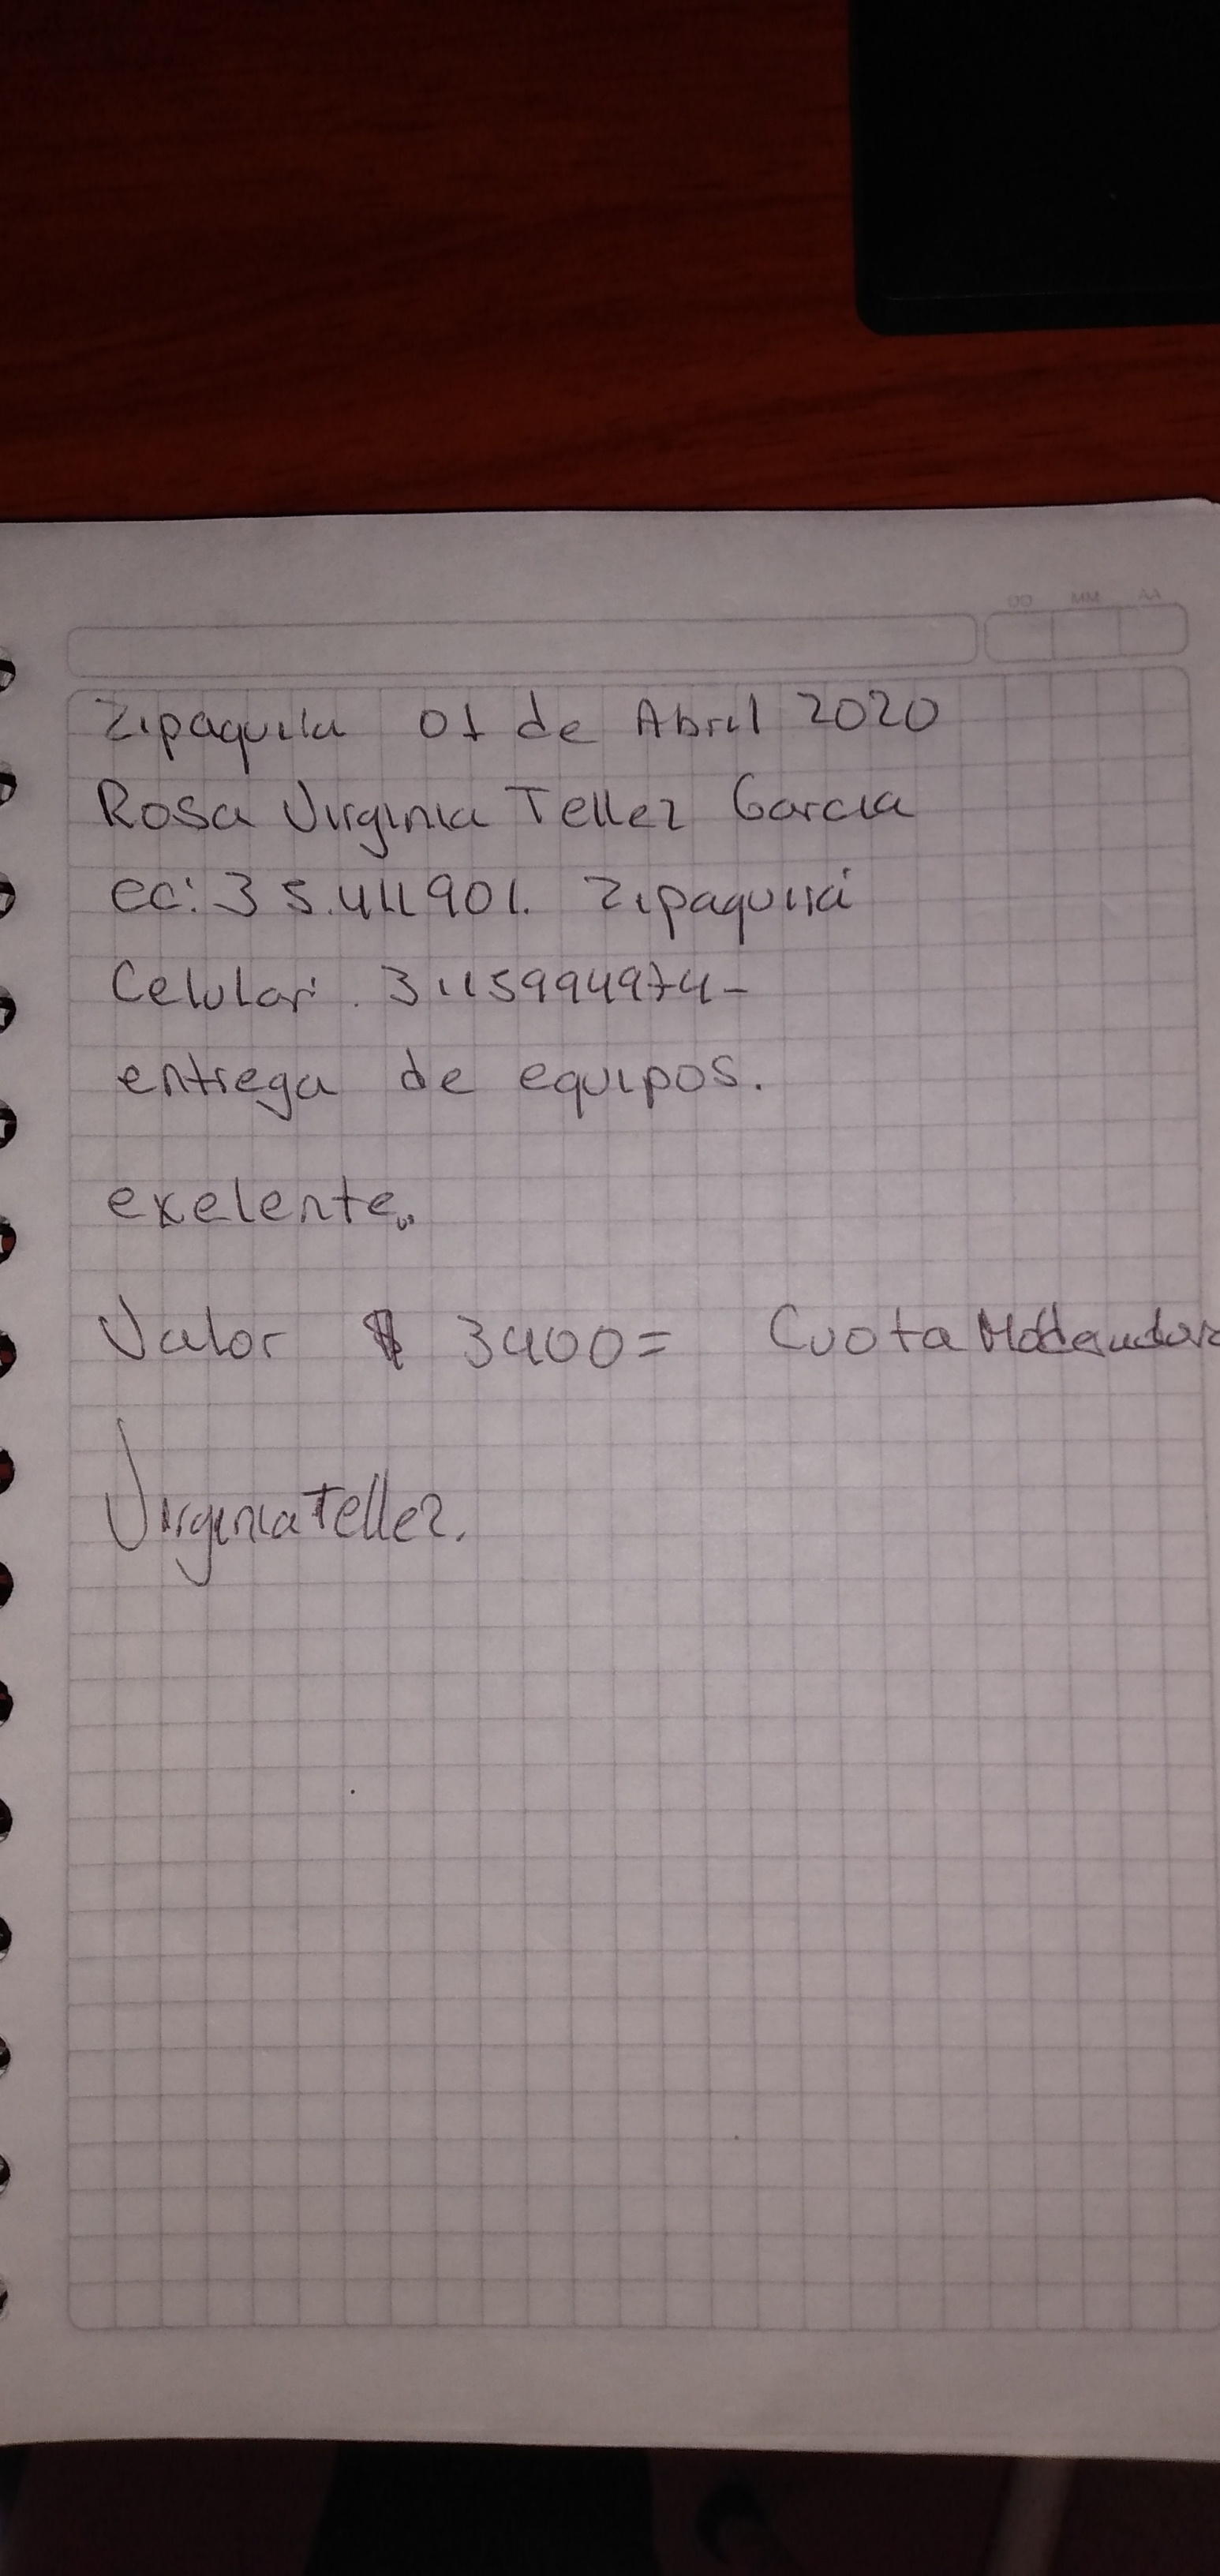 Zipaquira 01 de Abril 2020
Rosa Virginia Tellez Garcia
cc: 35.411901. Zipaquirá
Celular: 3115994974-
entrega de equipos.
exelente..
Valor $ 3400= Cuota Moderadora
Virginia Tellez.
DD MM AA